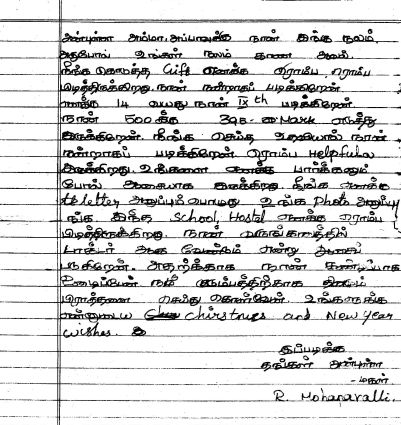 அன்புள்ள அம்மா அப்பாவுக்கு நான் இங்கு நலம்,
அதுபோல் உங்கள் நலம் காண ஆவல்.
நீங்க கொடுத்த Gift எனக்கு ரொம்ப ரொம்ப
பிடித்திருக்கிறது. நான் நன்றாகப் படிக்கிறேன்.
எனக்கு 14 வயது நான் IX th படிக்கிறேன்.
நான் 500க்கு 395 Mark எடுத்து
இருக்கிறேன். நீங்க செய்த உதவியால் நான்
நன்றாகப் படிக்கிறேன் ரொம்ப Helpfulஆ
இருக்கிறது. உங்களை பார்க்கனும்
போல் ஆசையாக இருக்கிறது நீங்க எனக்கு
letter அனுப்பும் போது உங்க Photo அனுப்பு
ங்க இந்த School, Hostal எனக்கு ரொம்ப
பிடித்திருக்கிறது. நான் வருங்காலத்தில்
டாக்டர் ஆக வேண்டும் என்று ஆசைப்
படுகிறேன். அதற்காக நான் கண்டிப்பாக
உழைப்பேன் குடும்பத்திற்காக தினமும்
பிராத்தனை செய்து கொள்வேன். உங்களுக்கு
என்னுடைய Chirstmes and New year
wishes.
இப்படிக்கு
தங்கள் அன்புள்ள
- மகள்
R. Mohanavalli.